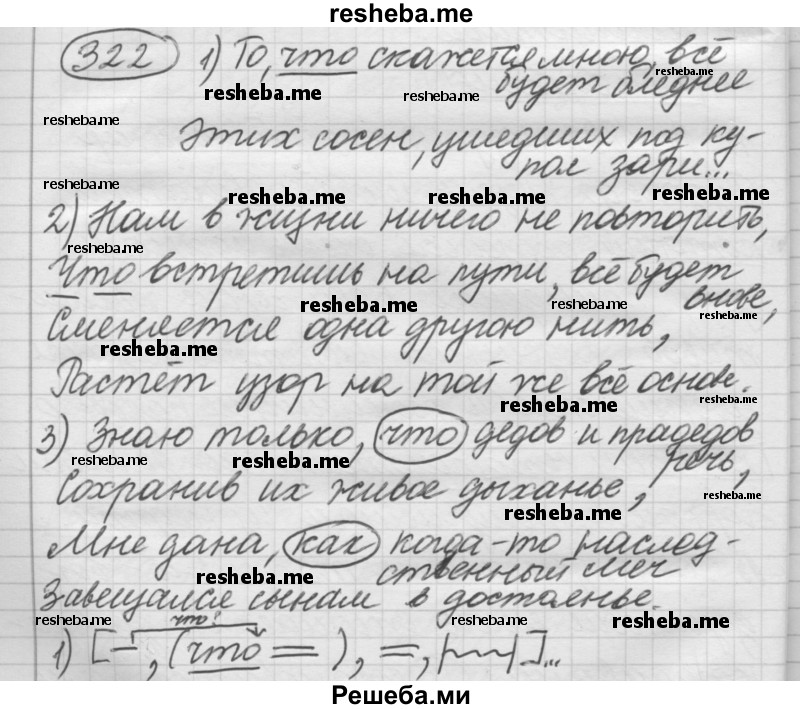 resheba.me
322 1) То, что скажется мною, всё
resheba.me
будет бледнее
resheba.me
resheba.me
resheba.me
Этих сосен, ушедших под ку-
пол зари...
resheba.me
resheba.me
resheba.me
resheba.me
2) Нам в жизни ничего не повторить,
resheba.me
Что встретишь на пути, всё будет
внове,
resheba.me
resheba.me
resheba.me
Сменяется одна другою нить,
resheba.me
Растёт узор на той же всё основе.
resheba.me
resheba.me
3) Знаю только, что дедов и прадедов
речь,
resheba.me
resheba.me
Сохранив их живое дыханье,
resheba.me
resheba.me
Мне дана, как когда-то наслед-
ственный меч
resheba.me
Завещался сынам в достоянье.
resheba.me
что?
resheba.me
resheba.me
1) [– , (что = ), =, ]...
Решеба.ми